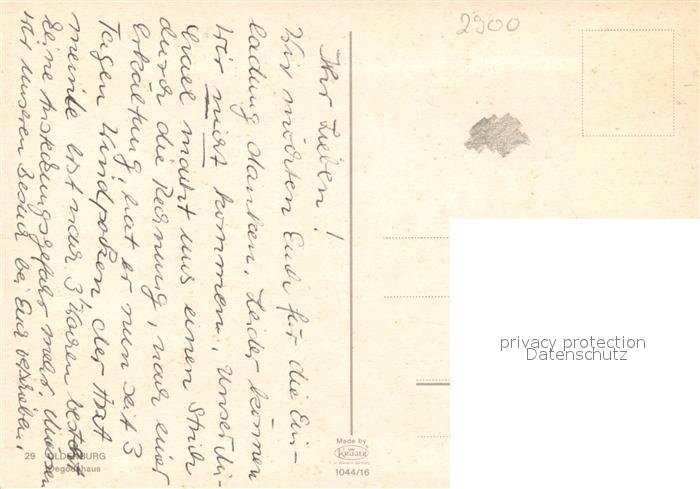 Ihr Lieben!
Wir möchten Euch für die Ein-
ladung danken, Leider können
Wir nicht kommen. Unser Mi-
chael macht uns einen Strich
durch die Rechnung, nach einer
Erkältung, hat er nun seit 3
Tagen Windpocken der Arzt
meinte erst nach 3 Wochen besteht
keine Ansteckungsgefahr mehr. Müssen
wir unseren Besuch bei Euch verschieben.
29 OLDENBURG
Degodehaus
2900
Made by
KRÜGER
in Western Germany
1044/16
privacy protection
Datenschutz